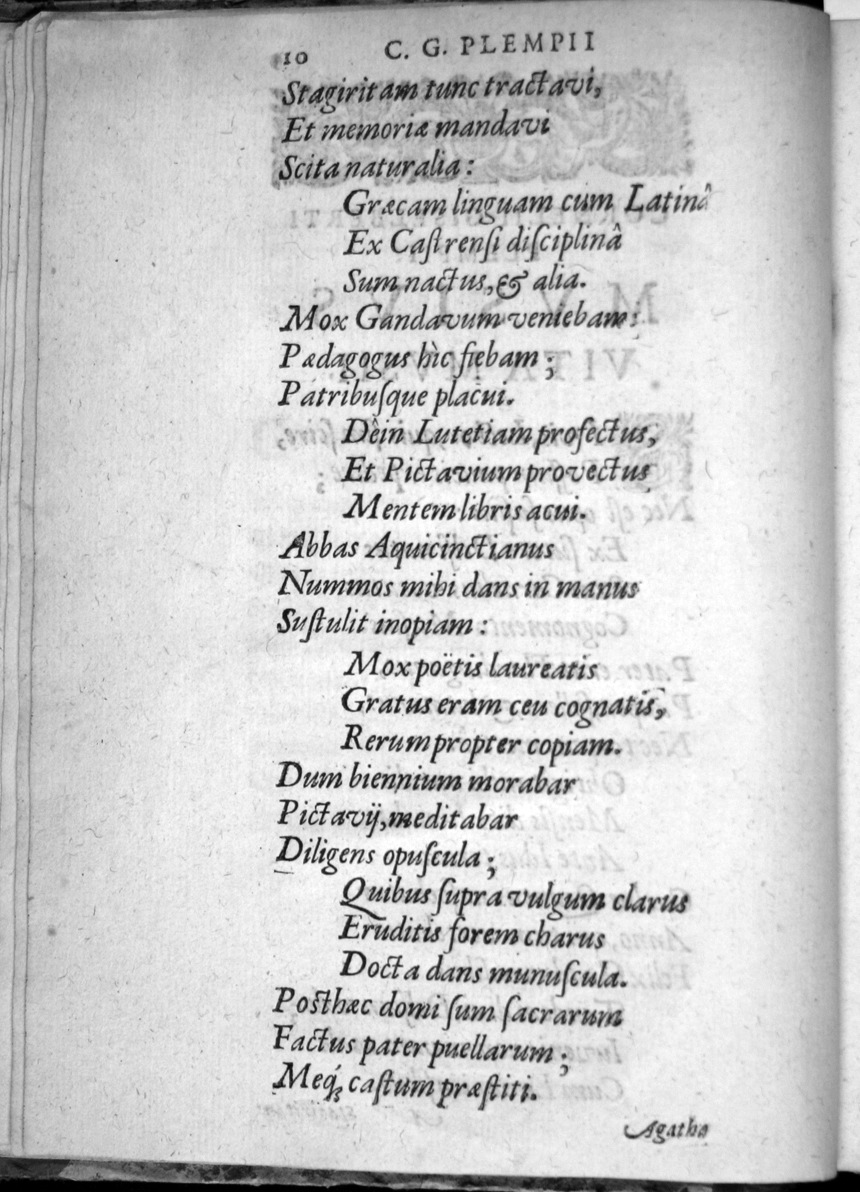 10 C. G. PLEMPII
Stagiritam tunc tractavi,
Et memoriæ mandavi
Scita naturalia:
Græcam linguam cum Latinâ
Ex Caſtrenſi diſciplinâ
Sum nactus, & alia.
Mox Gandavum veniebam:
Pædagogus hìc fiebam;
Patribuſque placui.
Dèin Lutetiam profectus,
Et Pictavium provectus
Mentem libris acui.
Abbas Aquicinctianus
Nummos mihi dans in manus
Suſtulit inopiam:
Mox poëtis laureatis
Gratus eram ceu cognatis,
Rerum propter copiam.
Dum biennium morabar
Pictavij, meditabar
Diligens opuſcula;
Quibus ſupra vulgum clarus
Eruditis forem charus
Docta dans munuſcula.
Poſthæc domi ſum ſacrarum
Factus pater puellarum;
Meq́ꝫ caſtum præſtiti.
Agatha